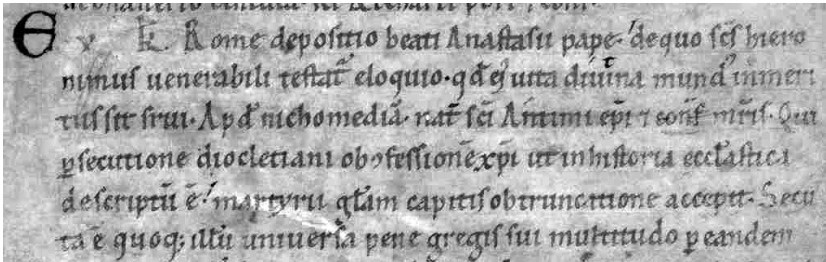 E v kł. Rome depositio beati Anastasii pape. de quo sc̄s hiero
nimus uenerabili testat᷑ eloquio. qd̄ ei uita diutina mund᷒ inmeri
tus sit frui. Apd̄ nichomediā. nat̄ sc̄i Antimi ep̄i ⁊ conf̄ mr̄is. Qui
ꝑsecutione diocletiani ob ꝯfessionē xp̄i ut in historia eccl̄astica
descriptū ē. martyrii gl̄am capitis obtruncatione accepit. Secu
ta ē quoq; illū uniuersa pene gregis sui multitudo ꝑ eandem